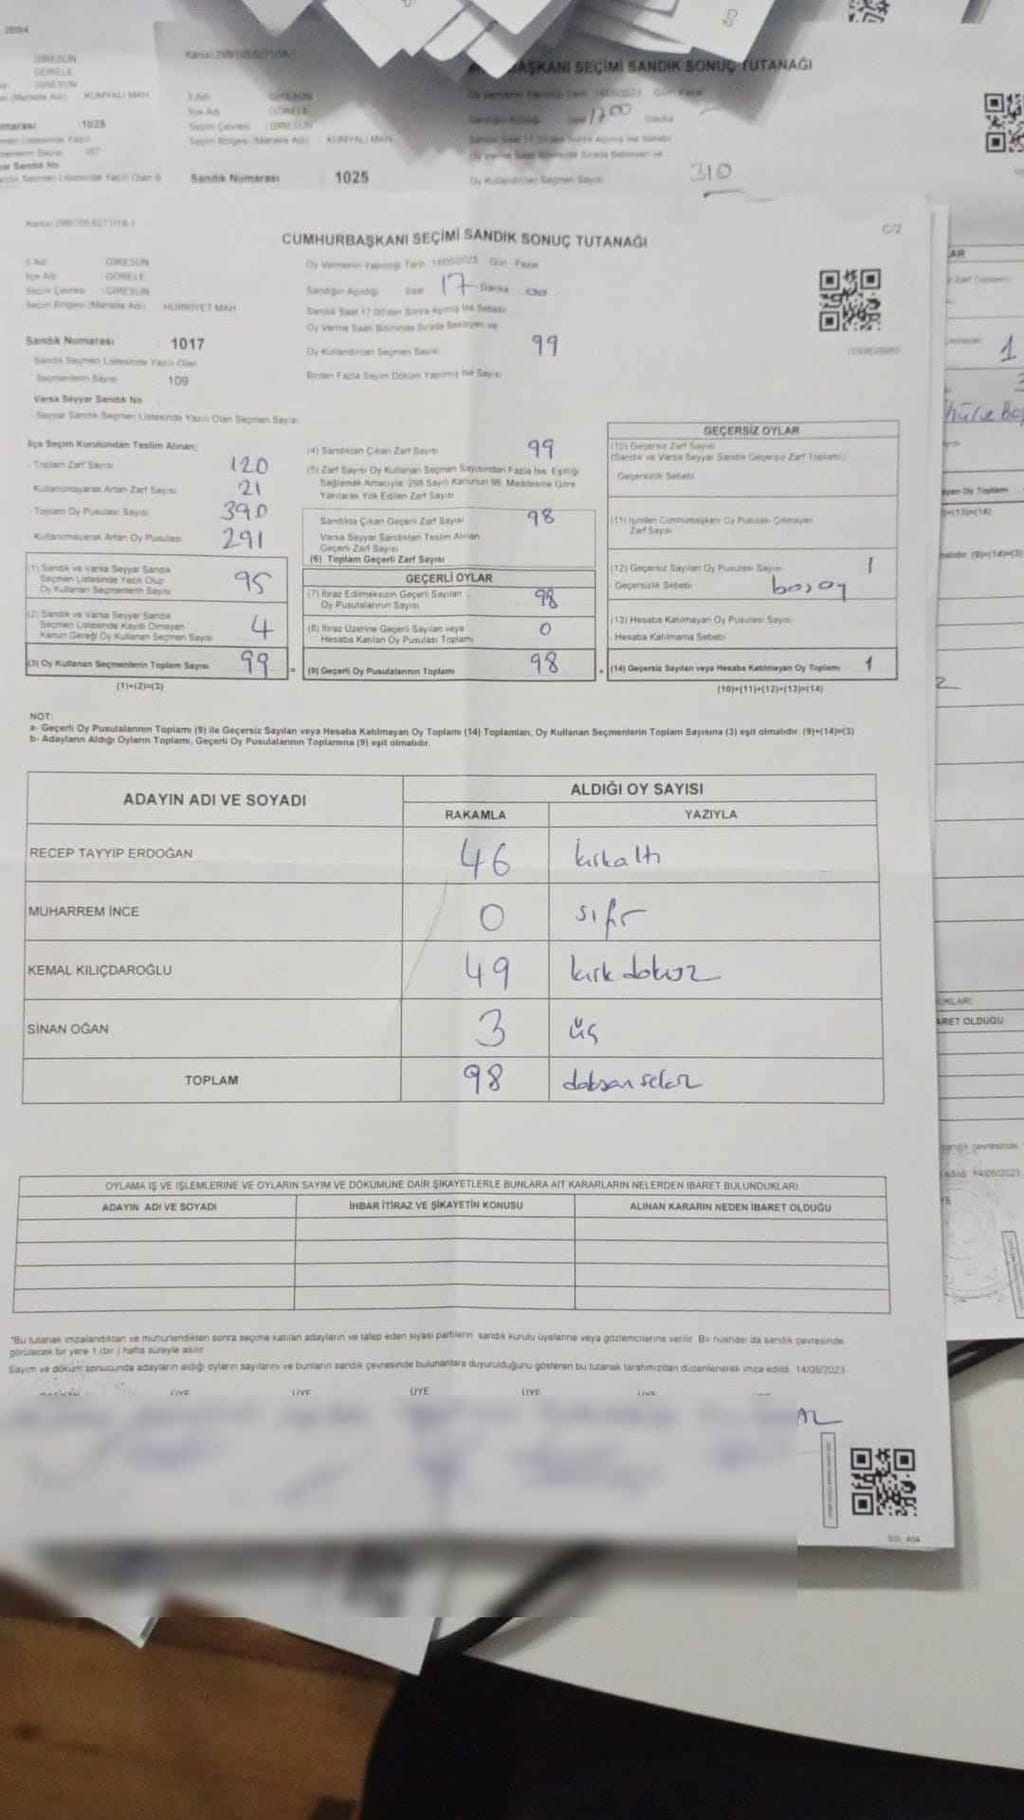 BAŞKANI SEÇİMİ SANDIK SONUÇ TUTANAĞI
GİRESUN
GÖRELE
KUMYALI MAH
1025
1700
KUMYALI MAH
Sandık Numarası 1025
Oy Kullandırılan Seçmen Sayısı 310
C/2
CUMHURBAŞKANI SEÇİMİ SANDIK SONUÇ TUTANAĞI
İl Adı GİRESUN
İlçe Adı GÖRELE
Seçim Çevresi GİRESUN
Seçim Bölgesi (Mahalle Adı) HÜRRİYET MAH
Oy Vermenin Yapıldığı Tarih 14/05/2023 Gün Pazar
Sandığın Açıldığı Saat 17 Dakika 00
Sandık Saat 17.00'den Sonra Açılmış İse Sebebi
Oy Verme Saati Bitiminde Sırada Bekleyen ve
Oy Kullandırılan Seçmen Sayısı 99
Birden Fazla Sayım Döküm Yapılmış İse Sayısı
Sandık Numarası 1017
Sandık Seçmen Listesinde Yazılı Olan
Seçmenlerin Sayısı 109
Varsa Seyyar Sandık No
Seyyar Sandık Seçmen Listesinde Yazılı Olan Seçmen Sayısı
İlçe Seçim Kurulundan Teslim Alınan;
Toplam Zarf Sayısı 120
Kullanılmayarak Artan Zarf Sayısı 21
Toplam Oy Pusulası Sayısı 390
Kullanılmayarak Artan Oy Pusulası 291
(1) Sandık ve Varsa Seyyar Sandık
Seçmen Listesinde Yazılı Olup
Oy Kullanan Seçmenlerin Sayısı 95
(2) Sandık ve Varsa Seyyar Sandık
Seçmen Listesinde Kaydı Olmayan
Kanun Gereği Oy Kullanan Seçmen Sayısı 4
(3) Oy Kullanan Seçmenlerin Toplam Sayısı 99
(1)+(2)=(3)
(4) Sandıktan Çıkan Zarf Sayısı 99
(5) Zarf Sayısı Oy Kullanan Seçmen Sayısından Fazla İse, Eşitliği
Sağlamak Amacıyla 298 Sayılı Kanunun 98. Maddesine Göre
Yakılarak Yok Edilen Zarf Sayısı
Sandıkta Çıkan Geçerli Zarf Sayısı 98
Varsa Seyyar Sandıktan Teslim Alınan
Geçerli Zarf Sayısı
(6) Toplam Geçerli Zarf Sayısı
GEÇERLİ OYLAR
(7) İtiraz Edilmeksizin Geçerli Sayılan
Oy Pusulalarının Sayısı 98
(8) İtiraz Üzerine Geçerli Sayılan veya
Hesaba Katılan Oy Pusulası Toplamı 0
= (9) Geçerli Oy Pusulalarının Toplamı 98
GEÇERSİZ OYLAR
(10) Geçersiz Zarf Sayısı
(Sandık ve Varsa Seyyar Sandık Geçersiz Zarf Toplamı)
Geçersizlik Sebebi
(11) İçinden Cumhurbaşkanı Oy Pusulası Çıkmayan
Zarf Sayısı
(12) Geçersiz Sayılan Oy Pusulası Sayısı 1
Geçersizlik Sebebi boş oy
(13) Hesaba Katılmayan Oy Pusulası Sayısı
Hesaba Katılmama Sebebi
+ (14) Geçersiz Sayılan veya Hesaba Katılmayan Oy Toplamı 1
(10)+(11)+(12)+(13)=(14)
NOT:
a- Geçerli Oy Pusulalarının Toplamı (9) ile Geçersiz Sayılan veya Hesaba Katılmayan Oy Toplamı (14) Toplamları, Oy Kullanan Seçmenlerin Toplam Sayısına (3) eşit olmalıdır. (9)+(14)=(3)
b- Adayların Aldığı Oyların Toplamı, Geçerli Oy Pusulalarının Toplamına (9) eşit olmalıdır.
ADAYIN ADI VE SOYADI
ALDIĞI OY SAYISI
RAKAMLA YAZIYLA
RECEP TAYYİP ERDOĞAN 46 kırkaltı
MUHARREM İNCE 0 sıfır
KEMAL KILIÇDAROĞLU 49 kırk dokuz
SİNAN OĞAN 3 üç
TOPLAM 98 doksan sekiz
OYLAMA İŞ VE İŞLEMLERİNE VE OYLARIN SAYIM VE DÖKÜMÜNE DAİR ŞİKAYETLERLE BUNLARA AİT KARARLARIN NELERDEN İBARET BULUNDUKLARI
ADAYIN ADI VE SOYADI İHBAR İTİRAZ VE ŞİKAYETİN KONUSU ALINAN KARARIN NEDEN İBARET OLDUĞU
"Bu tutanak imzalandıktan ve mühürlendikten sonra seçime katılan adayların ve talep eden siyasi partilerin sandık kurulu üyelerine veya gözlemcilerine verilir. Bir nüshası da sandık çevresinde
görülecek bir yere 1 (bir) hafta süreyle asılır.
Sayım ve döküm sonucunda adayların aldığı oyların sayılarını ve bunların sandık çevresinde bulunanlara duyurulduğunu gösteren bu tutanak tarafımızdan düzenlenerek imza edildi. 14/05/2023
ÜYE ÜYE ÜYE ÜYE ÜYE